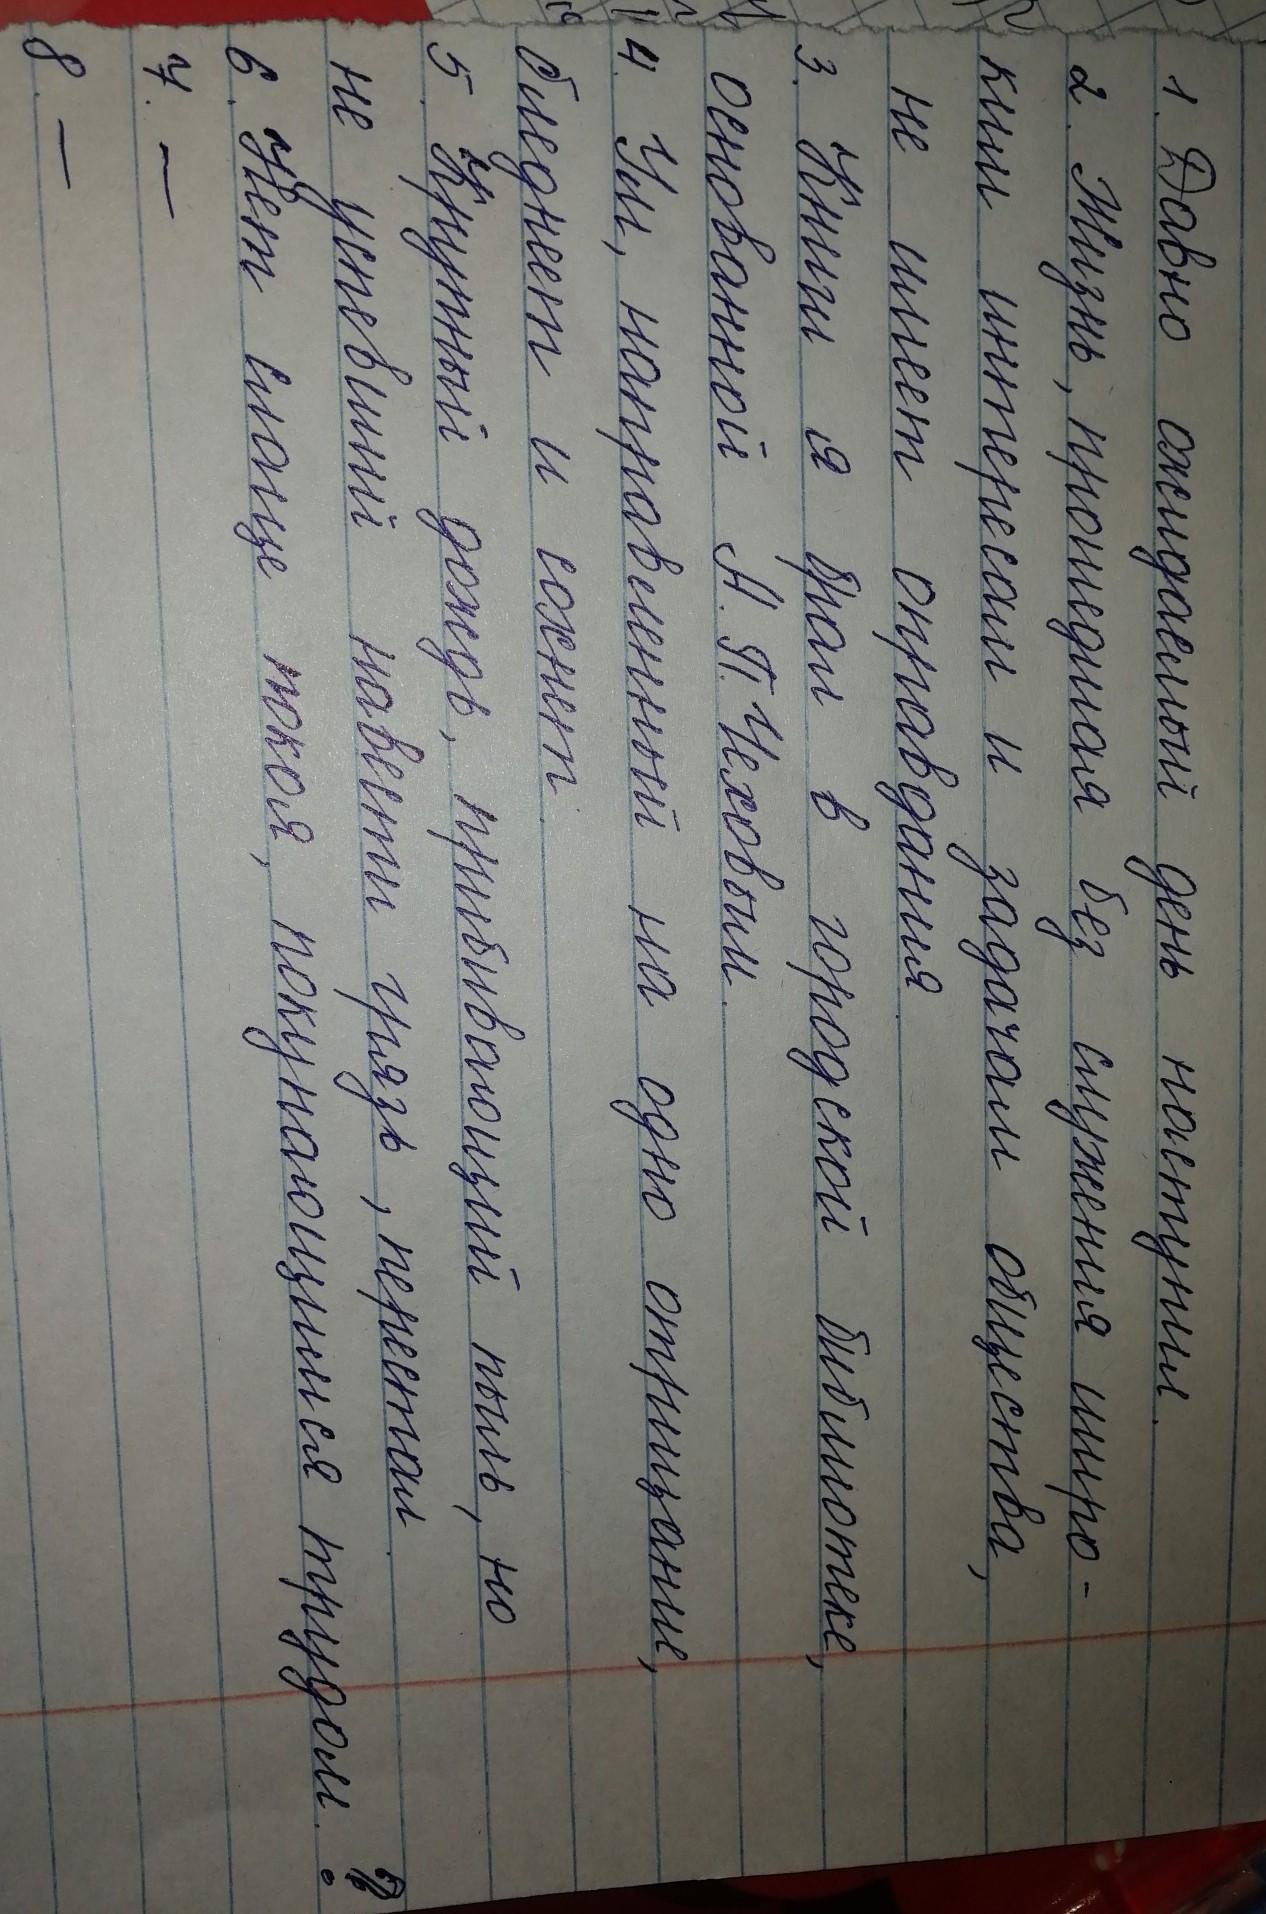 1. Давно ожидаемый день наступил.
2. Жизнь, прошедшая без служения широ-
ким интересам и задачам общества,
не имеет оправдания
3. Книги я брал в городской библиотеке,
основанной А. П. Чеховым.
4. Ум, направленный на одно отрицание,
бледнеет и сохнет.
5. Крупный дождь, прибивающий пыль, но
не успевший навести грязь, перестал.
6. Нет слаще покоя, покупающимся трудом. ?
7. —
8. —